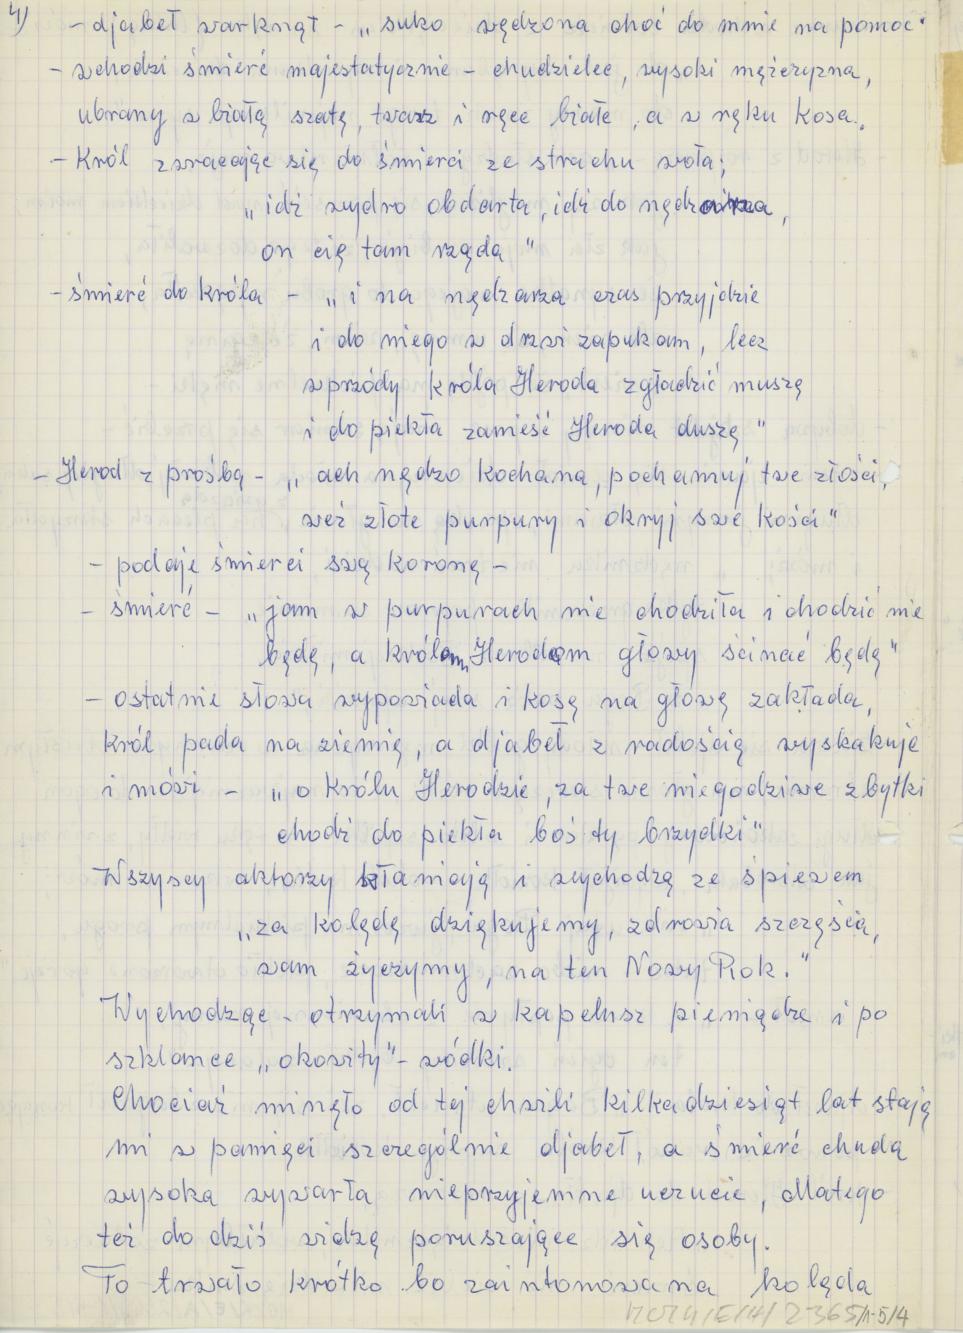 4)
- djabeł warknął - „suko wędzona choć do mnie na pomoc"
- wchodzi śmierć majestatycznie - chudzielec, wysoki mężczyzna,
ubrany w białą szatę, twarz i ręce białe, a w ręku kosa.
- Król zwracając się do śmierci ze strachu woła;
„idź wydro obdarta, idź do nędzarza,
on cię tam rząda"
- śmierć do króla - „i na nędzarza czas przyjdzie
i do niego w drzwi zapukam, lecz
wprzódy króla Heroda zgładzić muszę
i do piekła zanieść Heroda duszę"
- Herod z prośbą - „ach nędzo kochana, pochamuj twe złości,
weź złote purpury i okryj swe kości"
- podaje śmierci swą koronę -
- śmierć - „jam w purpurach nie chodziła i chodzić nie
będę, a królom Herodom głowy ścinać będę"
- ostatnie słowa wypowiada i kosę na głowę zakłada,
Król pada na ziemię, a djabeł z radością wyskakuje
i mówi - „o Królu Herodzie, za twe niegodziwe zbytki
chodź do piekła boś ty brzydki"
Wszyscy aktorzy kłamają i wychodzą ze śpiewem
„za kolędę dziękujemy, zdrowia szczęścia,
wam życzymy, na ten Nowy Rok."
Wychodząc - otrzymali w kapelusz pieniądze i po
szklance „okowity" - wódki.
Chociaż minęło od tej chwili kilkadziesiąt lat stają
mi w pamięci szczególnie djabeł, a śmierć chuda
wysoka wywarła nieprzyjemne uczucie, dlatego
też do dziś widzę poruszające się osoby.
To trwało krótko bo zaintonowana kolęda
2365/1-5/4